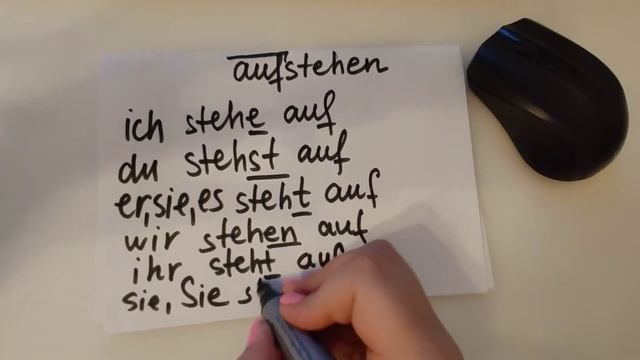 aufstehen
ich stehe auf
du stehst auf
er, sie, es steht auf
wir stehen auf
ihr steht auf
sie, Sie s